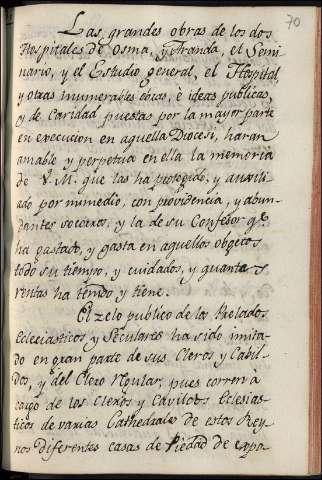 70
Las grandes obras de los dos
Hospitales de Osma, y Aranda, el Semi
nario, y el Estudio general, el Hospital
y otras inumerables obras, è ideas publicas,
y de Caridad puestas por la mayor parte
en execucion en aquella Diocesi, haran
amable y perpetua en ella la memoria
de V. M. que las ha protegido, y auxili
ado por mi medio, con providencia, y abun
dantes socorros, y la de su Confesor qe.
ha gastado, y gasta en aquellos obgetos
todo su tiempo, y cuidados, y quantas
rentas ha tenido y tiene.
El zelo publico de los Prelados
Eclesiasticos y Seculares ha sido imita
do en gran parte de sus Cleros y Cabil
dos, y del Clero Regular, pues corren à
cargo de los Cleros y Cavildos Eclesias
ticos de varias Cathedrales de estos Rey
nos diferentes casas de Piedad de expo